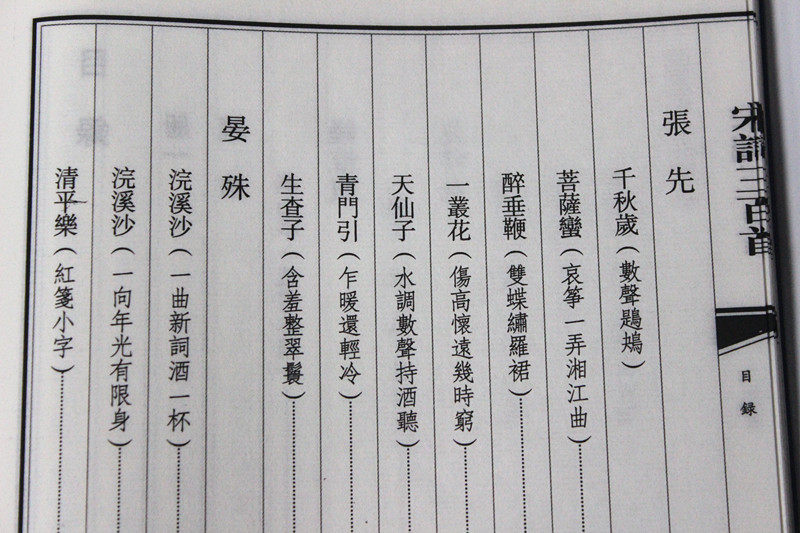 宋詞三百首
目録
張先
千秋歲（數聲鶗鴂）
菩薩蠻（哀箏一弄湘江曲）
醉垂鞭（雙蝶繡羅裙）
一叢花（傷高懷遠幾時窮）
天仙子（水調數聲持酒聽）
青門引（乍暖還輕冷）
生查子（含羞整翠鬟）
晏殊
浣溪沙（一曲新詞酒一杯）
浣溪沙（一向年光有限身）
清平樂（紅箋小字）